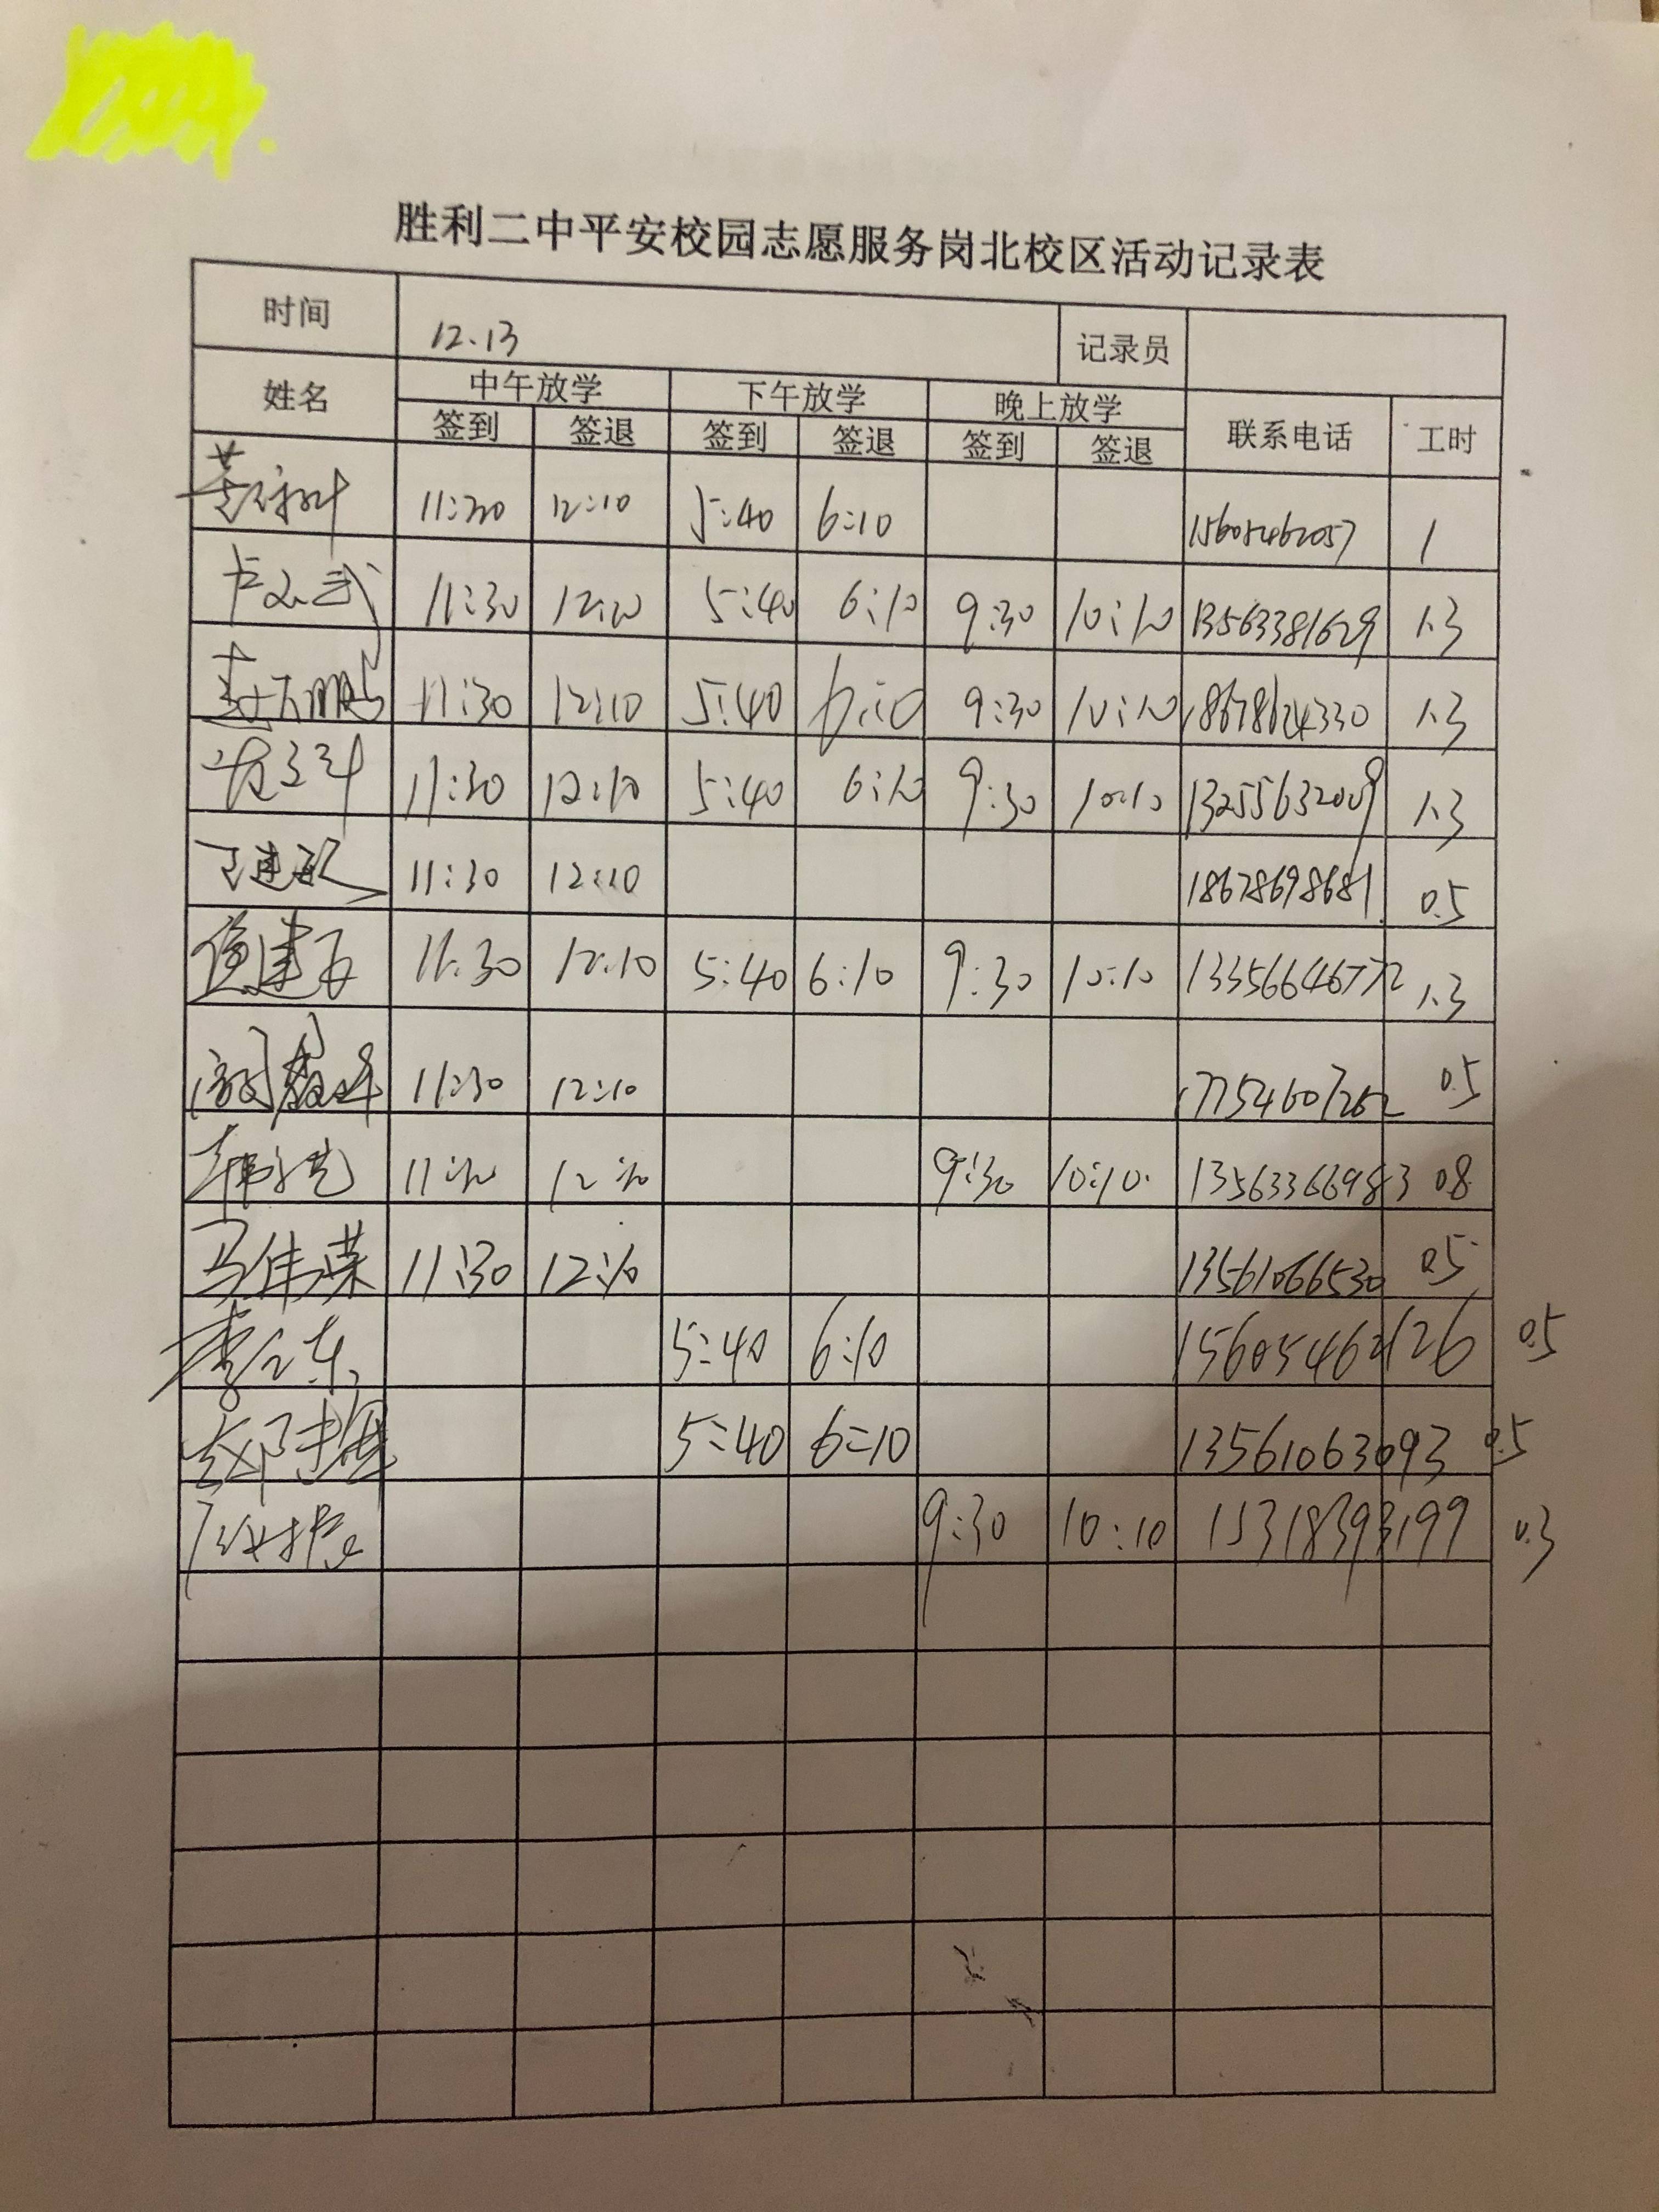 胜利二中平安校园志愿服务岗北校区活动记录表
时间 12.13 记录员
姓名 中午放学 下午放学 晚上放学 联系电话 工时
签到 签退 签到 签退 签到 签退
11:30 12:10 5:40 6:10 15605462057 1
卢文武 11:30 12:10 5:40 6:10 9:30 10:10 13563381629 1.3
11:30 12:10 5:40 6:10 9:30 10:10 18678624330 1.3
11:30 12:10 5:40 6:10 9:30 10:10 13255632009 1.3
11:30 12:10 18678698681 0.5
11:30 12:10 5:40 6:10 9:30 10:10 13356646772 1.3
11:30 12:10 17754607262 0.5
11:30 12:10 9:30 10:10 13563366983 0.8
马伟荣 11:30 12:10 13561066530 0.5
5:40 6:10 15605462126 0.5
5:40 6:10 13561063093 0.5
9:30 10:10 15318393199 0.3